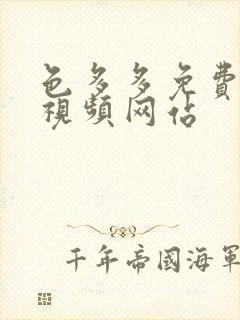 色多多免費
視頻网佔
千年帝國海軍